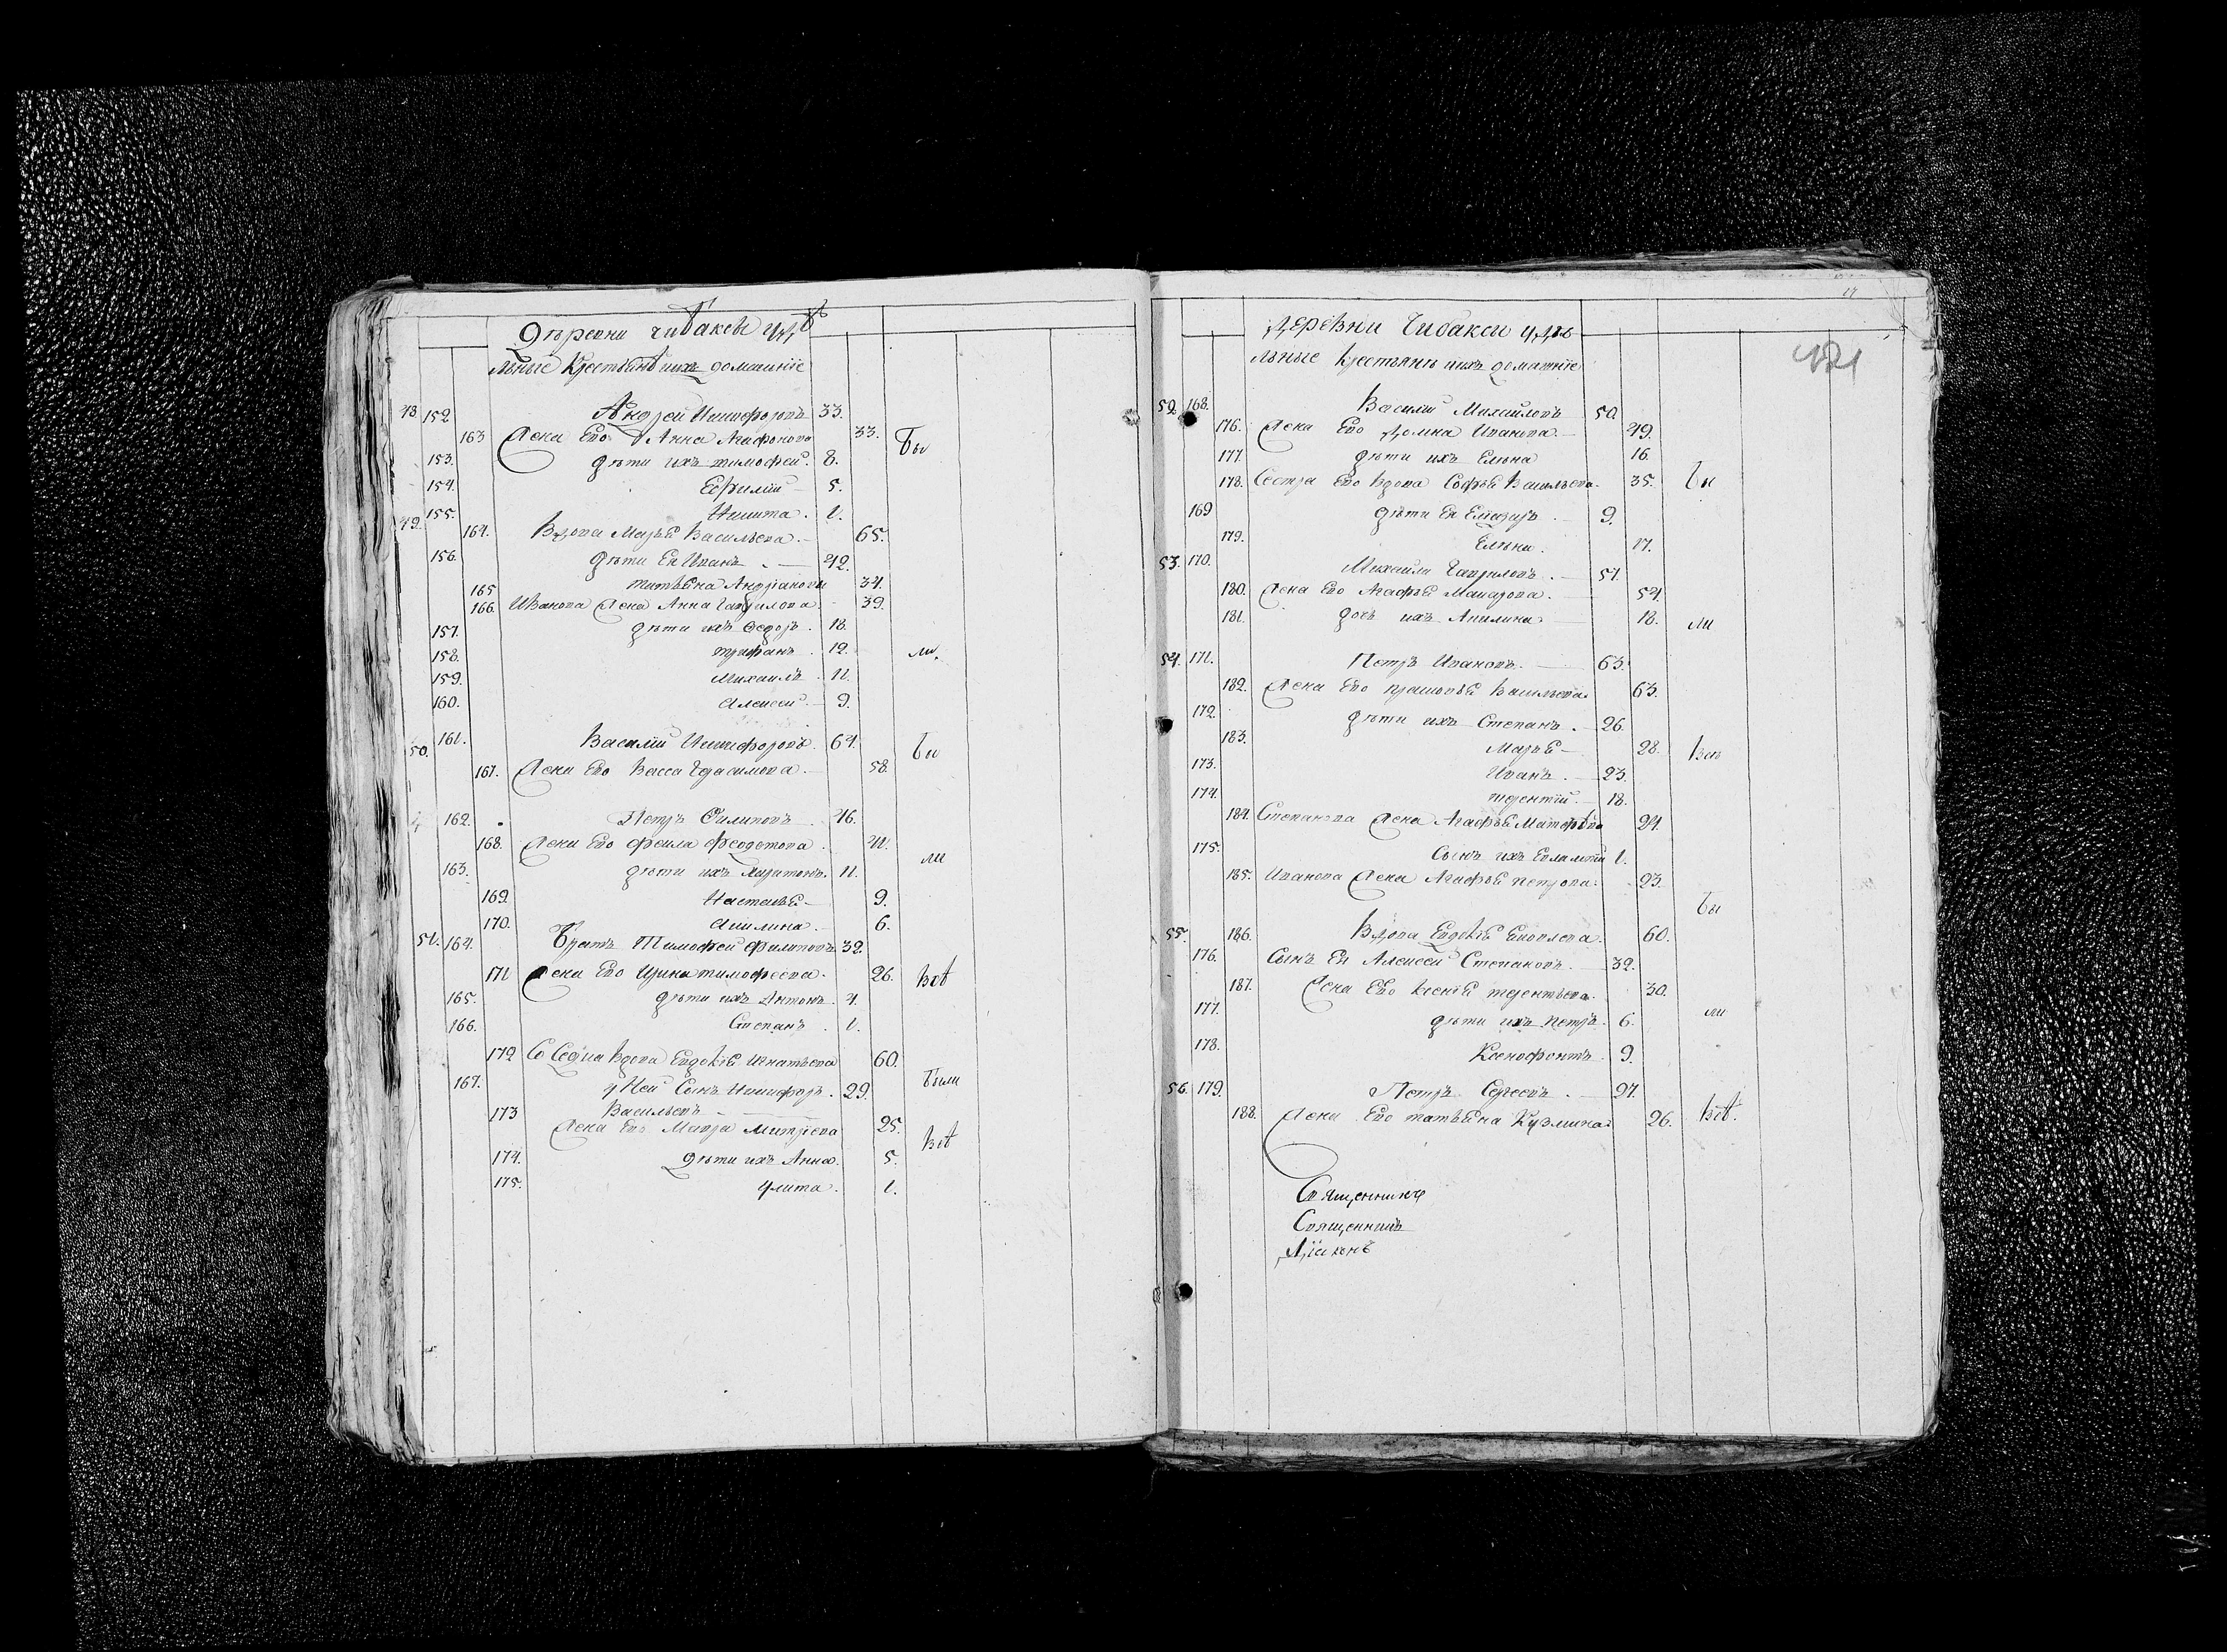 Деревни чибаксы Удѣ
льные Крестьянѣ ихъ домашніе
48 152 Андрей Никифоровъ 33.
163 Жена Ево Анна Агафонова 33. Бы
153. дѣти ихъ тимофей. 8.
154. Ефимій 5.
155. Никита. 1.
49. 164. Вдова Марья Васильева. 65.
156. дѣти Ея Иванъ. 42.
165 татьяна Андрианова 34.
166. Иванова Жена Анна Гаврилова 39.
157. дѣти ихъ Федоръ. 18.
158. трифанъ. 12. ли.
159. Михаилъ. 11.
160. Алексей. 9.
50. 161. Василій Никифоровъ. 64. Бы
167. Жена Ево Васса Герасимова. 58.
162. Петръ Филиповъ. 46.
168. Жена Ево Феклa Феодотова. 41. ли
163. дѣти ихъ Харитонъ. 11.
169. Насталья 9.
170. Акилина. 6.
51. 164. Братъ Тимофей Филиповъ 32.
171 Жена Ево Ирина тимофеева. 26. всѣ
165. дѣти ихъ Антонъ. 4.
166. Степанъ. 1.
172 Соседка Вдова Евдокія Игнатьева 60.
167. у Ней Сынъ Никифоръ. 29. были
Васильевъ
173 Жена Ево Мавра Митрева 25. всѣ
174. дѣти ихъ Анна. 5.
175. Улита. 1.
17
Деревни Чибакси Удѣ
льные Крестьянѣ ихъ домашніе
421
52. 168. Василій Михайловъ 50.
176. Жена Ево Домна Иванова. 49.
177. дѣти ихъ Елѣна 16.
178. Сестра Ево Вдова Софья Васильева. 35. Бы
169 дѣти Ея Елизаръ. 9.
179. Елѣна. 17.
53. 170. Михаила Гавриловъ. 51.
180. Жена Ево Агафья Макарова. 54.
181. дочь ихъ Акилина 18. ли
54. 171. Петръ Ивановъ. 63.
182. Жена Ево прасковья Васильева. 63.
172. дѣти ихъ Степанъ. 26.
183. Марья 28. Всѣ
173. Иванъ. 23.
174. терентій. 18.
184. Степанова Жена Агафья Матфеева 24.
175. Сынъ ихъ Евлампій 1.
185. Иванова Жена Агафья петрова. 23.
Бы
55. 186. Вдова Евдокія Яковлева. 60.
176. Сынъ Ея Алексей Степановъ. 32.
187. Жена Ево Ксенія терентьева. 30.
177. дѣти ихъ петръ. 6. ли
178. Ксенофонтъ. 9.
56. 179. Петръ Сергеевъ. 27.
188. Жена Ево татьяна Кузмина 26. Всѣ.
Священникъ
Священникъ
Діаконъ